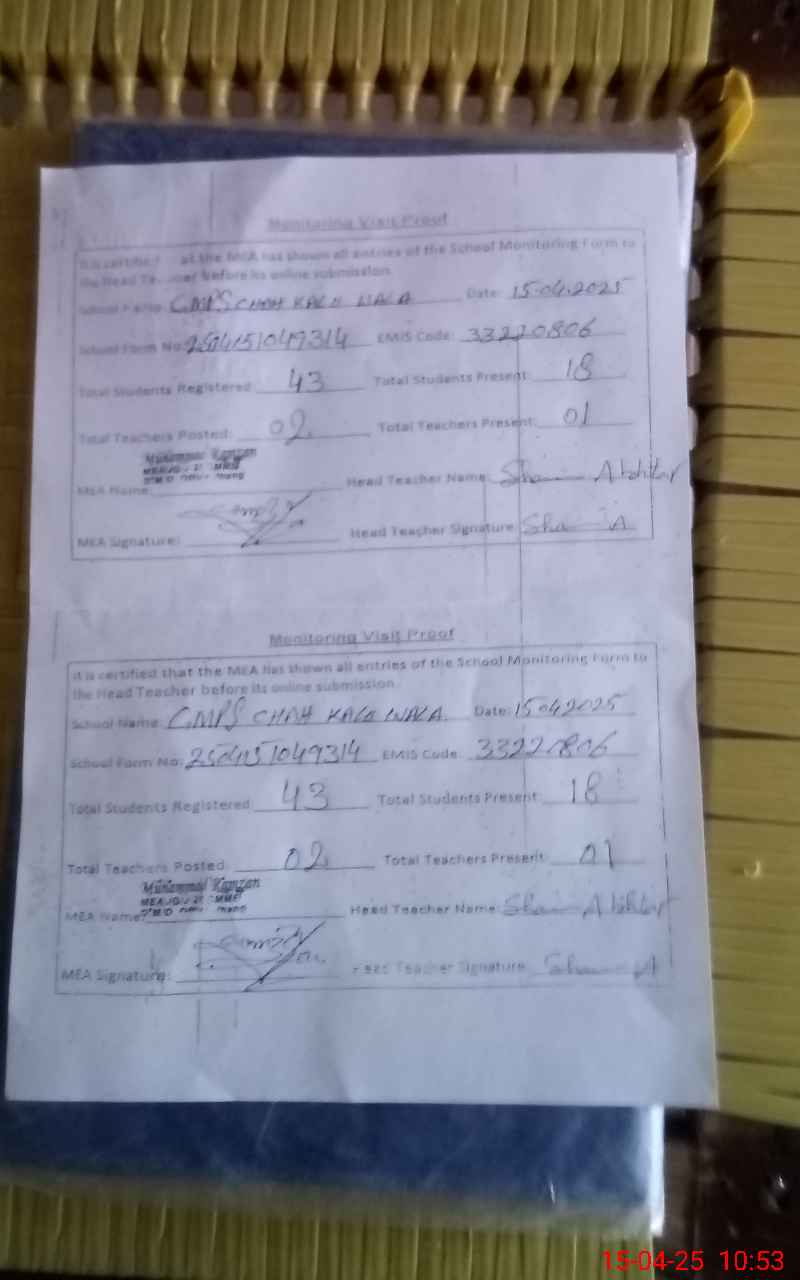 Monitoring Visit Proof
It is certified at the MEA has shown all entries of the School Monitoring Form to
the Head Teacher before its online submission.
School Name: GMPS CHAH KALO WALA Date: 15.04.2025
School Form No: 2504151049314 EMIS Code: 33220806
Total Students Registered: 43 Total Students Present: 18
Total Teachers Posted: 02 Total Teachers Present: 01
Muhammad Ramzan
MEA Name: Head Teacher Name: Akhtar
MEA Signature: Head Teacher Signature:
Monitoring Visit Proof
It is certified that the MEA has shown all entries of the School Monitoring Form to
the Head Teacher before its online submission.
School Name: GMPS CHAH KALO WALA Date: 15042025
School Form No: 2504151049314 EMIS Code: 33220806
Total Students Registered: 43 Total Students Present: 18
Total Teachers Posted: 02 Total Teachers Present: 01
Muhammad Ramzan
MEA Name: Head Teacher Name: Akhtar
MEA Signature: Head Teacher Signature:
15-04-25 10:53